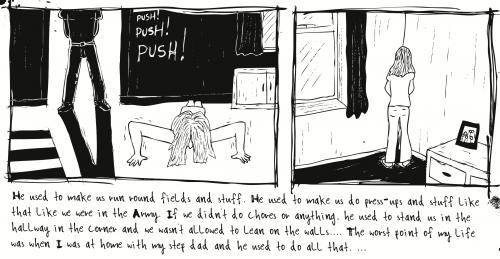 PUSH!
PUSH!
PUSH!
He used to make us run round fields and stuff. He used to make us do press-ups and stuff like
that like we were in the Army. If we didn't do chores or anything. he used to stand us in the
hallway in the corner and we wasn't allowed to lean on the walls.... The worst point of my life
was when I was at home with my step dad and he used to do all that. ...